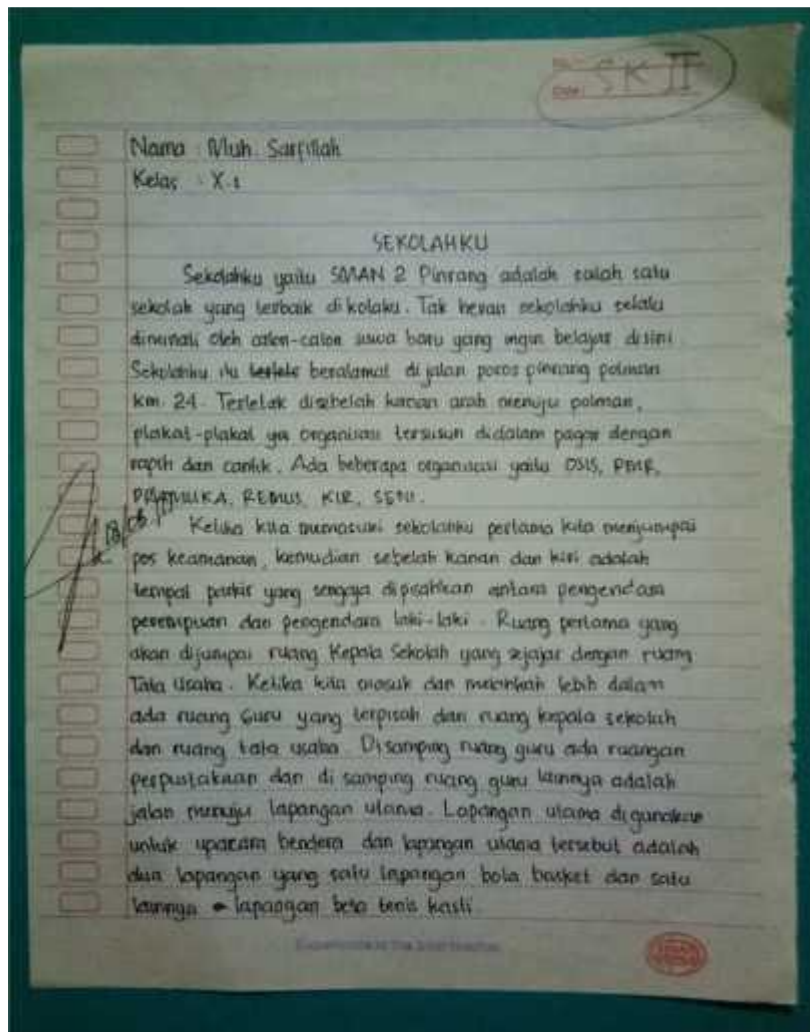 SK II
Nama : Muh. Sarfillah
Kelas : X.1
SEKOLAHKU
Sekolahku yaitu SMAN 2 Pinrang adalah salah satu
sekolah yang terbaik di kotaku. Tak heran sekolahku selalu
diminati oleh calon-calon siswa baru yang ingin belajar disini
Sekolahku itu beralamat di jalan poros pinrang polman
km. 24. Terletak disebelah kanan arah menuju polman,
plakat-plakat organisasi tersusun didalam pagar dengan
rapih dan cantik. Ada beberapa organisasi yaitu OSIS, PMR,
PRAMUKA, REMUS, KIR, SENI.
Ketika kita memasuki sekolahku pertama kita menjumpai
pos keamanan, kemudian sebelah kanan dan kiri adalah
tempat parkir yang sengaja dipisahkan antara pengendara
perempuan dan pengendara laki-laki. Ruang pertama yang
akan dijumpai ruang Kepala Sekolah yang sejajar dengan ruang
Tata Usaha. Ketika kita masuk dan melangkah lebih dalam
ada ruang Guru yang terpisah dari ruang kepala sekolah
dan ruang tata usaha. Disamping ruang guru ada ruangan
perpustakaan dan di samping ruang guru lainnya adalah
jalan menuju lapangan utama. Lapangan utama digunakan
untuk upacara bendera dan lapangan utama tersebut adalah
dua lapangan yang satu lapangan bola basket dan satu
lainnya lapangan bola tenis kasti.